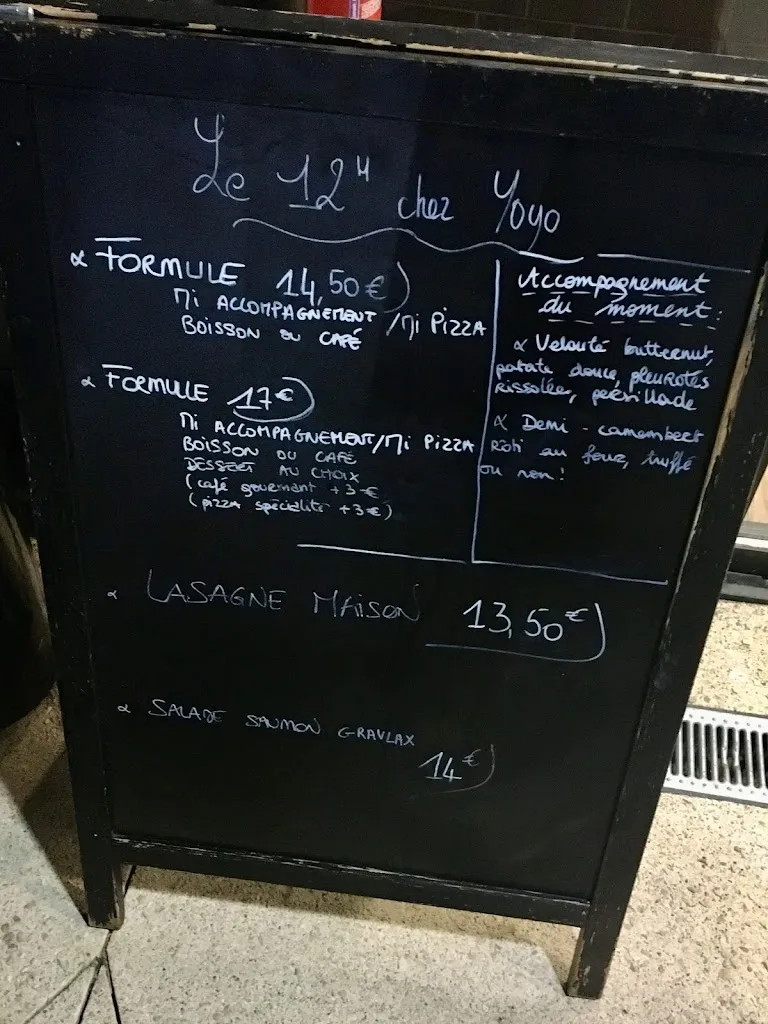 Le 12H chez Yoyo
∝ FORMULE 14,50€
MI ACCOMPAGNEMENT /MI PIZZA
BOISSON OU CAFÉ
∝ FORMULE 17€
MI ACCOMPAGNEMENT/MI PIZZA
BOISSON OU CAFÉ
DESSERT AU CHOIX
(café gourmant +3€
(pizza spécialité +3€)
Accompagnement
du moment:
∝ Velouté butternut,
patate douce, pleurotes
rissolée, persillade
∝ Demi-camembert
Rôti au four, truffé
ou non!
∝ LASAGNE MAISON 13,50€
∝ SALADE SAUMON GRAVLAX
14€